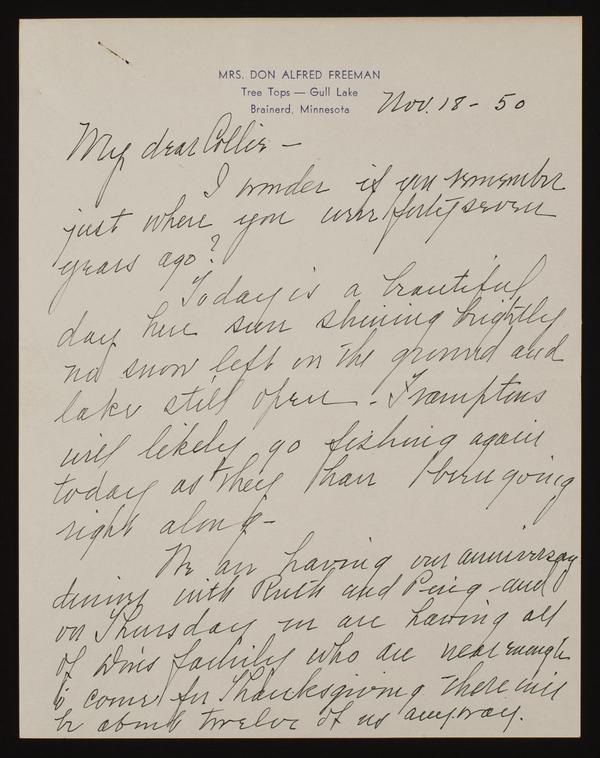 MRS. DON ALFRED FREEMAN
Tree Tops — Gull Lake
Brainerd, Minnesota
Nov. 18 - 50
My dear Collie —
I wonder if you remember
just where you were forty seven
years ago?
Today is a beautiful
day here sun shining brightly
no snow left on the ground and
lake still open - Framptons
will likely go fishing again
today as they have been going
right along -
We are having our anniversay
dinner with Ruth and - and
on Thursday we are having all
of Dons family who are near enough
to come for Thanksgiving There will
be about twelve of us anyway.